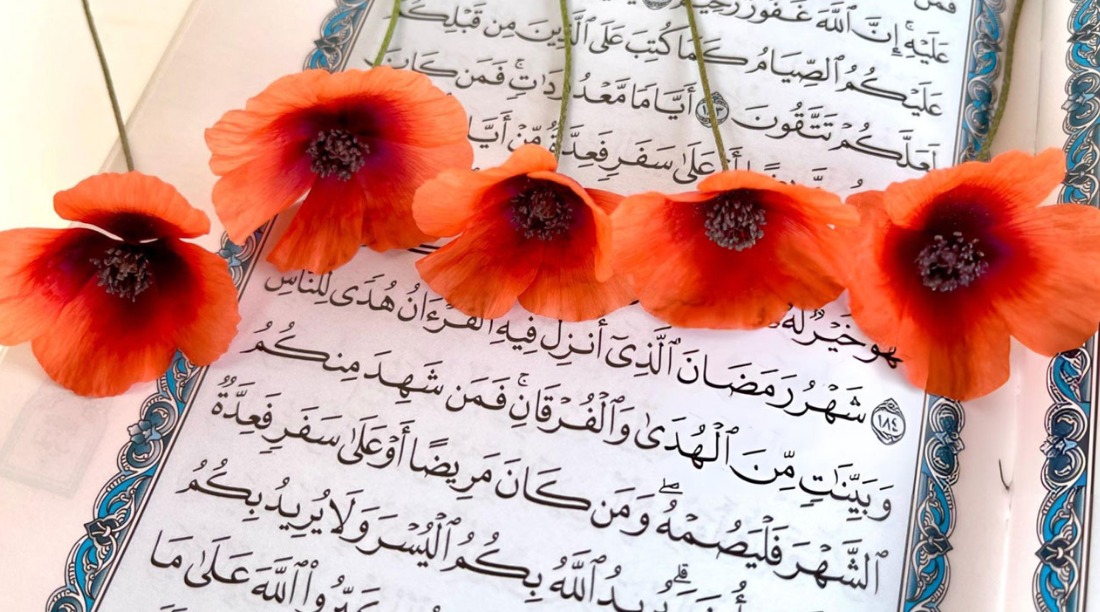 عَلَيْهِۚ إِنَّ ٱللَّهَ غَفُورٌ رَّحِيمٌ
عَلَيْكُمُ ٱلصِّيَامُ كَمَا كُتِبَ عَلَى ٱلَّذِينَ مِن قَبْلِكُمْ
لَعَلَّكُمْ تَتَّقُونَ ١٨٣ أَيَّامًا مَّعْدُودَٰتٍۚ فَمَن كَانَ
عَلَىٰ سَفَرٍ فَعِدَّةٌ مِّنْ أَيَّا
خَيْرٌ لَّهُ
١٨٤ شَهْرُ رَمَضَانَ ٱلَّذِىٓ أُنزِلَ فِيهِ ٱلْقُرْءَانُ هُدًى لِّلنَّاسِ
وَبَيِّنَٰتٍ مِّنَ ٱلْهُدَىٰ وَٱلْفُرْقَانِۚ فَمَن شَهِدَ مِنكُمُ
ٱلشَّهْرَ فَلْيَصُمْهُۖ وَمَن كَانَ مَرِيضًا أَوْ عَلَىٰ سَفَرٍ فَعِدَّةٌ
يُرِيدُ ٱللَّهُ بِكُمُ ٱلْيُسْرَ وَلَا يُرِيدُ بِكُمُ
ٱللَّهَ عَلَىٰ مَا